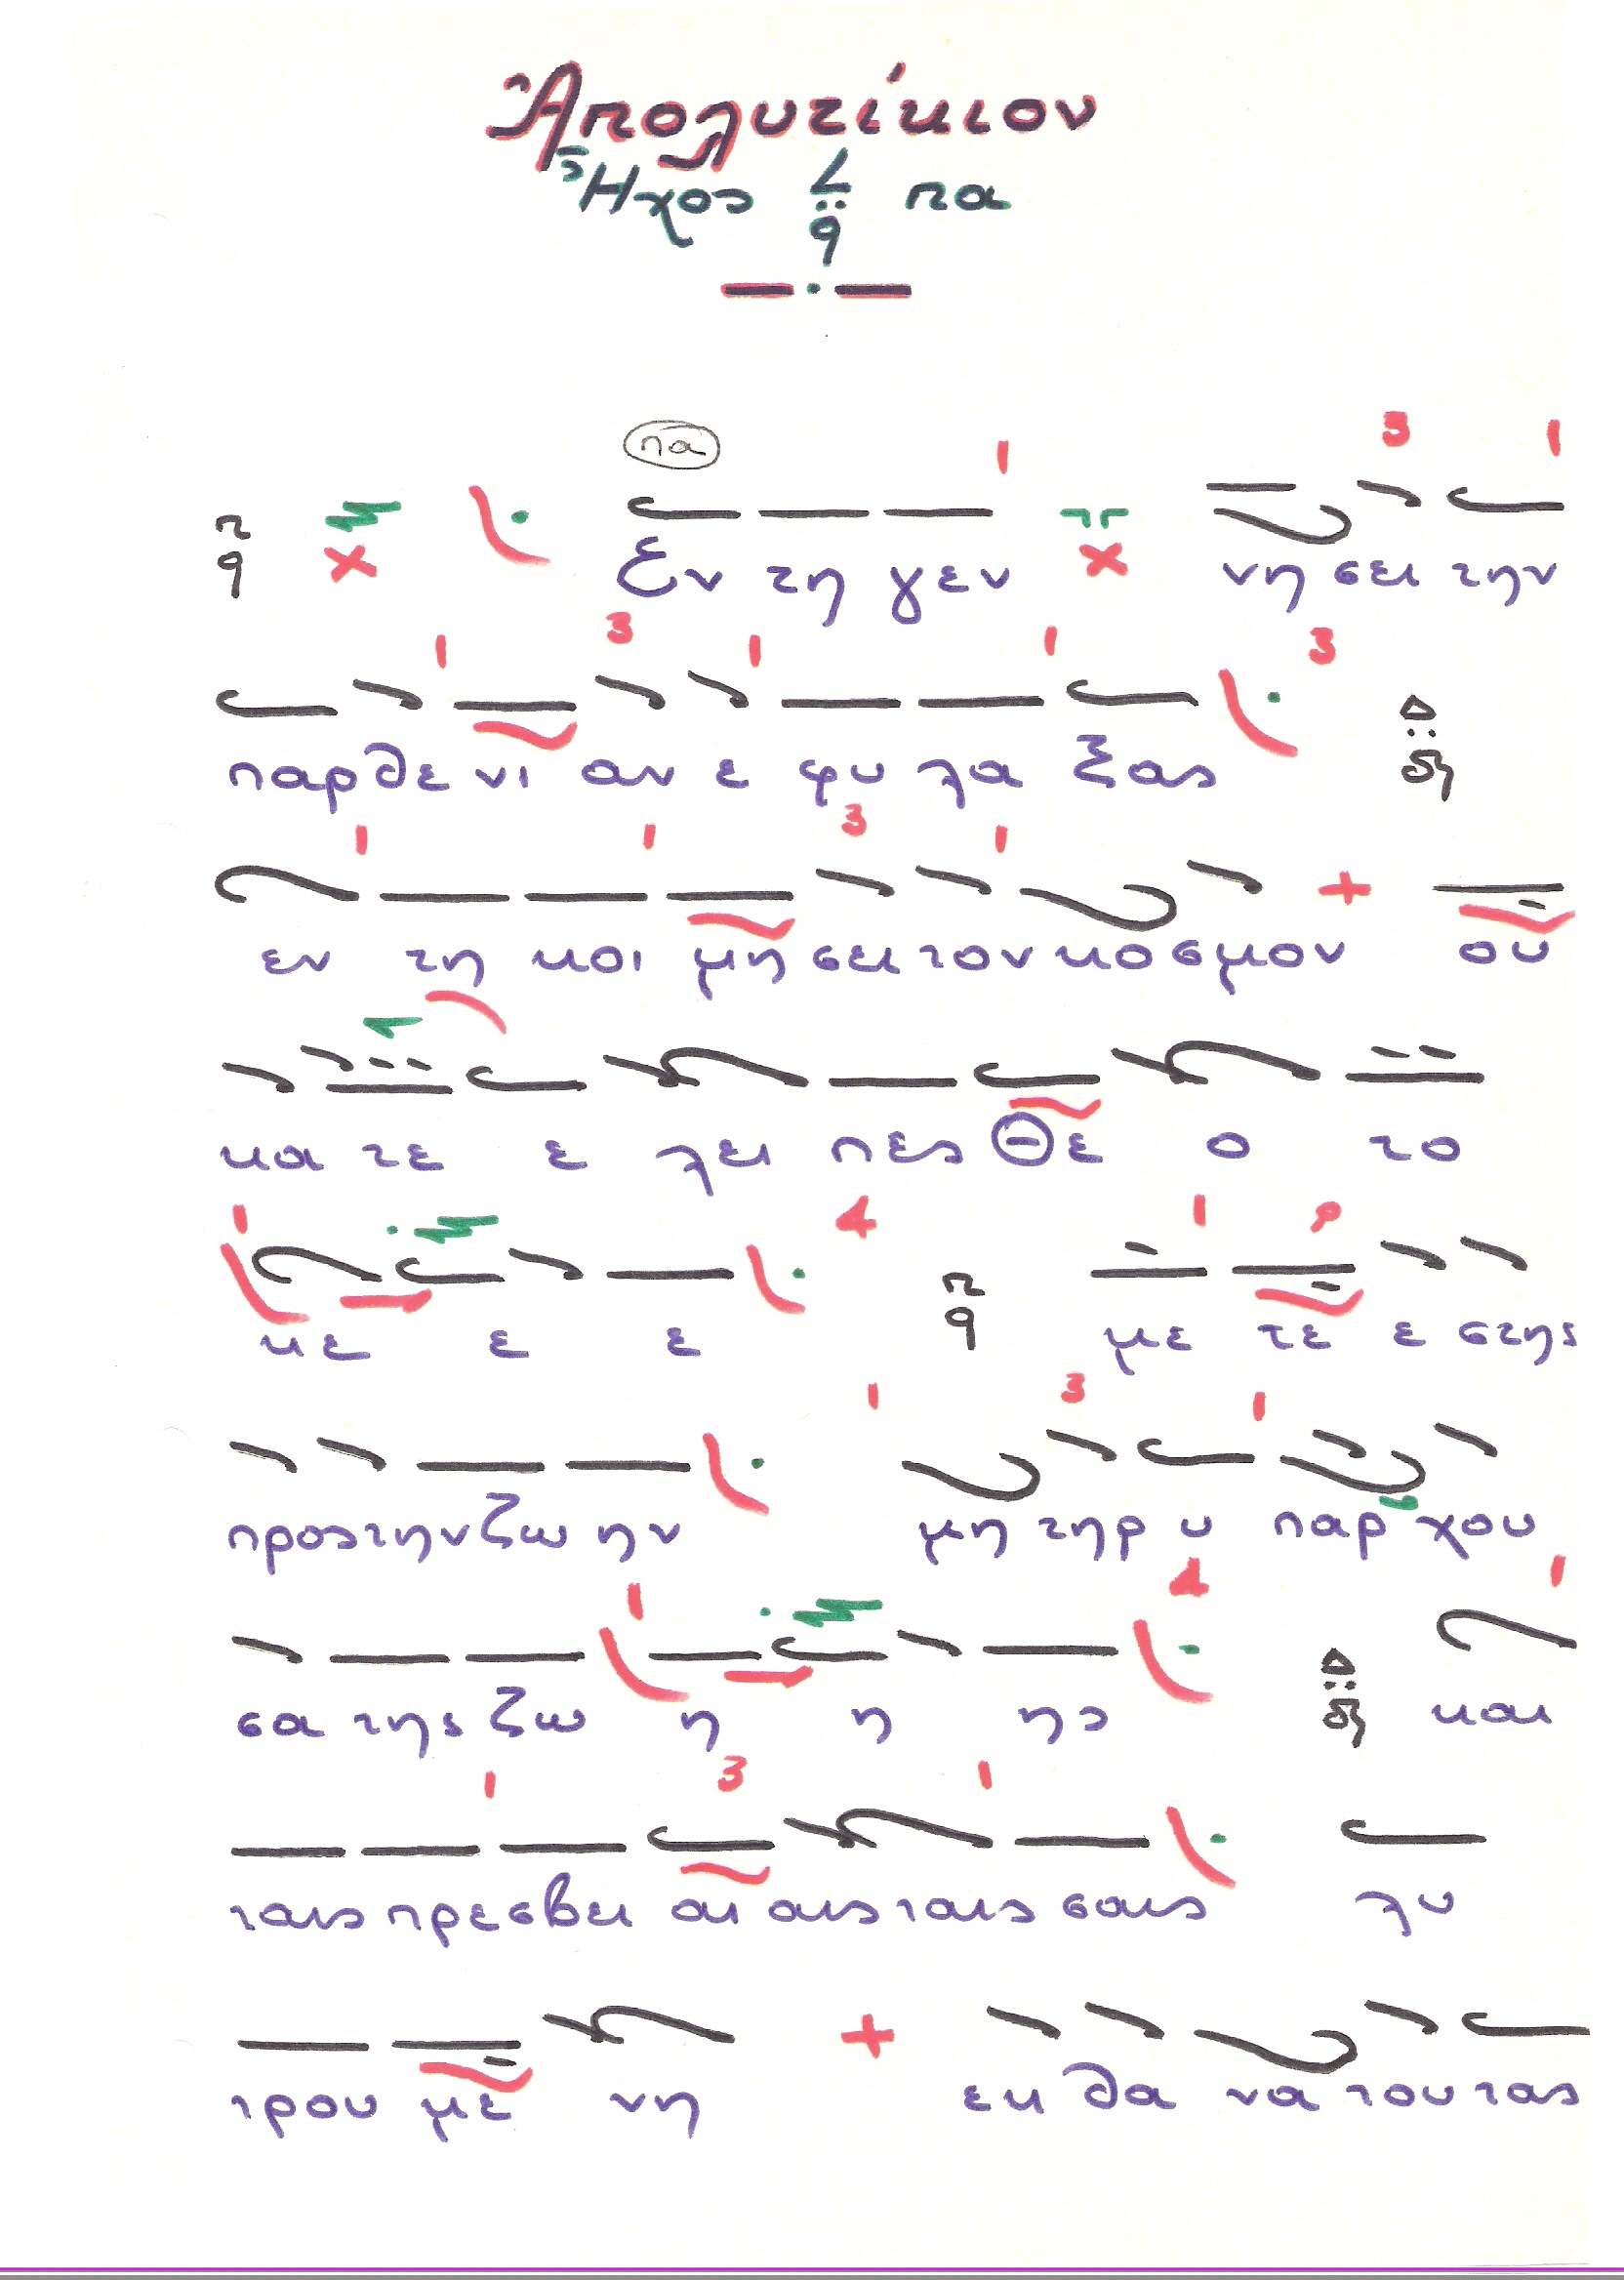 Ἀπολυτίκιον
Ἦχος πα
πα
3 1
1
Εν τη γεν νη σει την
1 3 1 1 3
παρ θε νι αν ε φυ λα ξας
1 1 3 1
εν τη κοι μη σει τον κο σμον ου
κα τε ε λει πες Θε ο το
1 4 1
κε ε ε με τε ε στης
1 3 1
προς την ζω ην μη τηρ υ παρ χου
1 4 1
σα της ζω η η ης και
1 3 1
ταις πρεσβει αι αις ταις σαις λυ
τρου με νη εκ θα να του τας